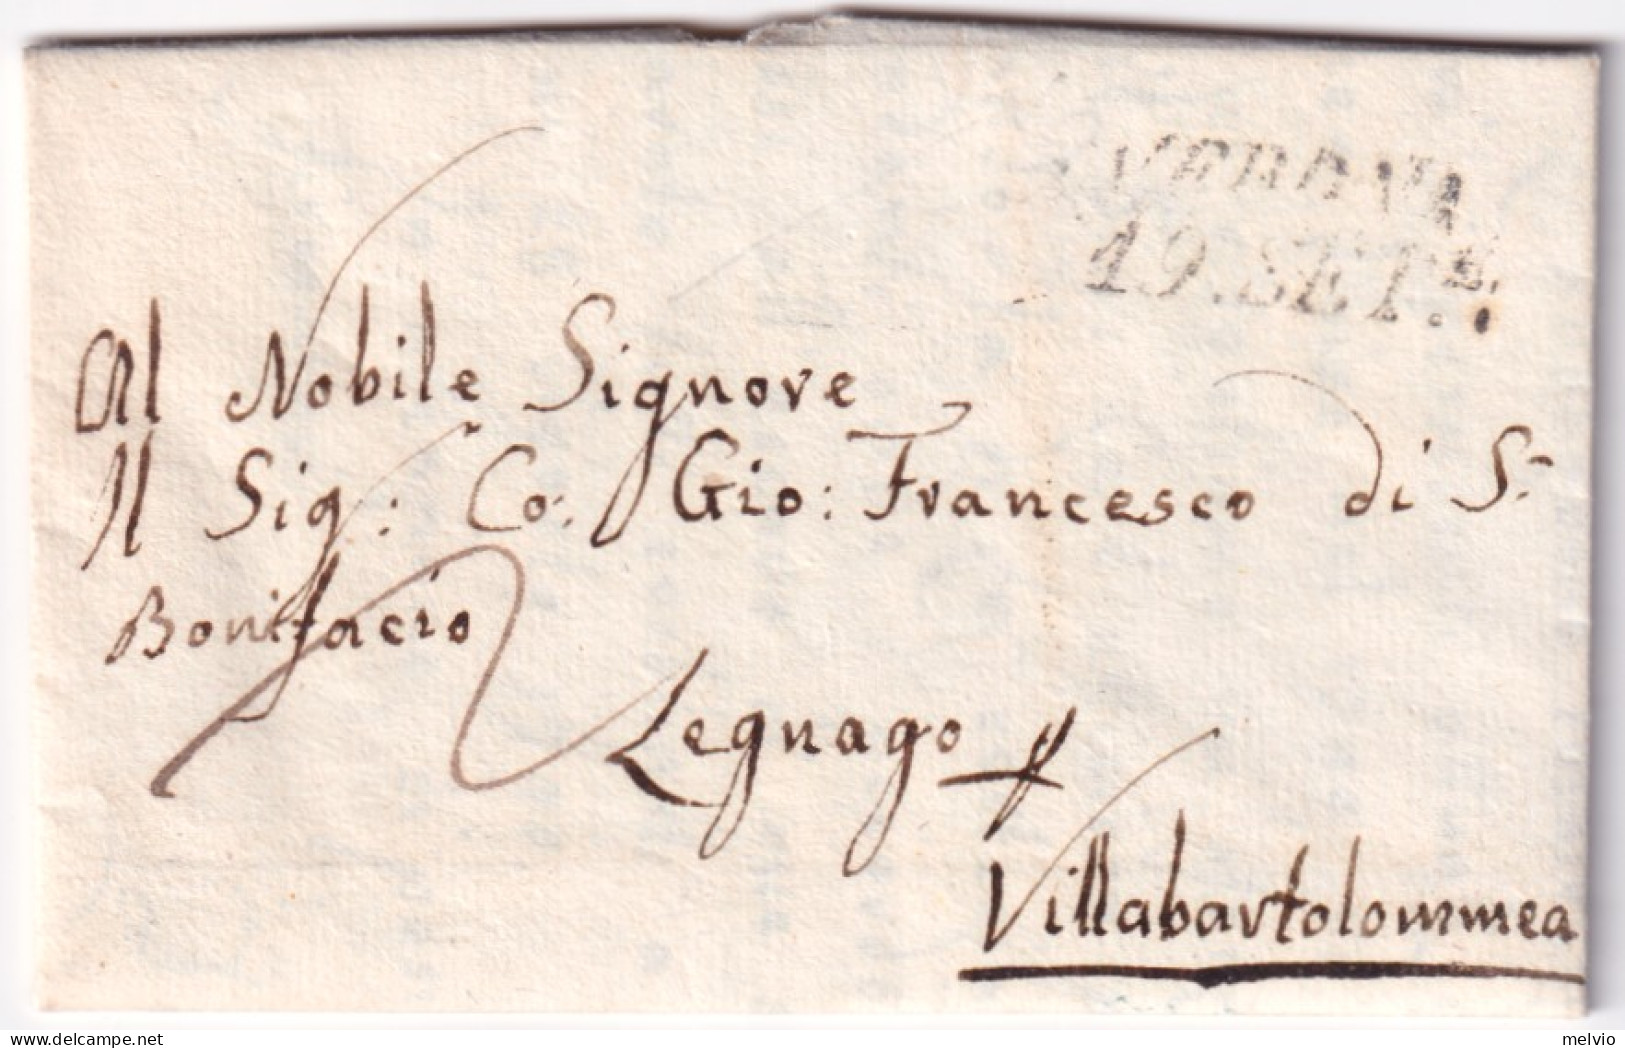 VERONA
19. SETE.
Al Nobile Signore
Il Sig: Co: Gio: Francesco di S.
Bonifacio
Legnago p
Villabartolommea
delcampe.net
melvio